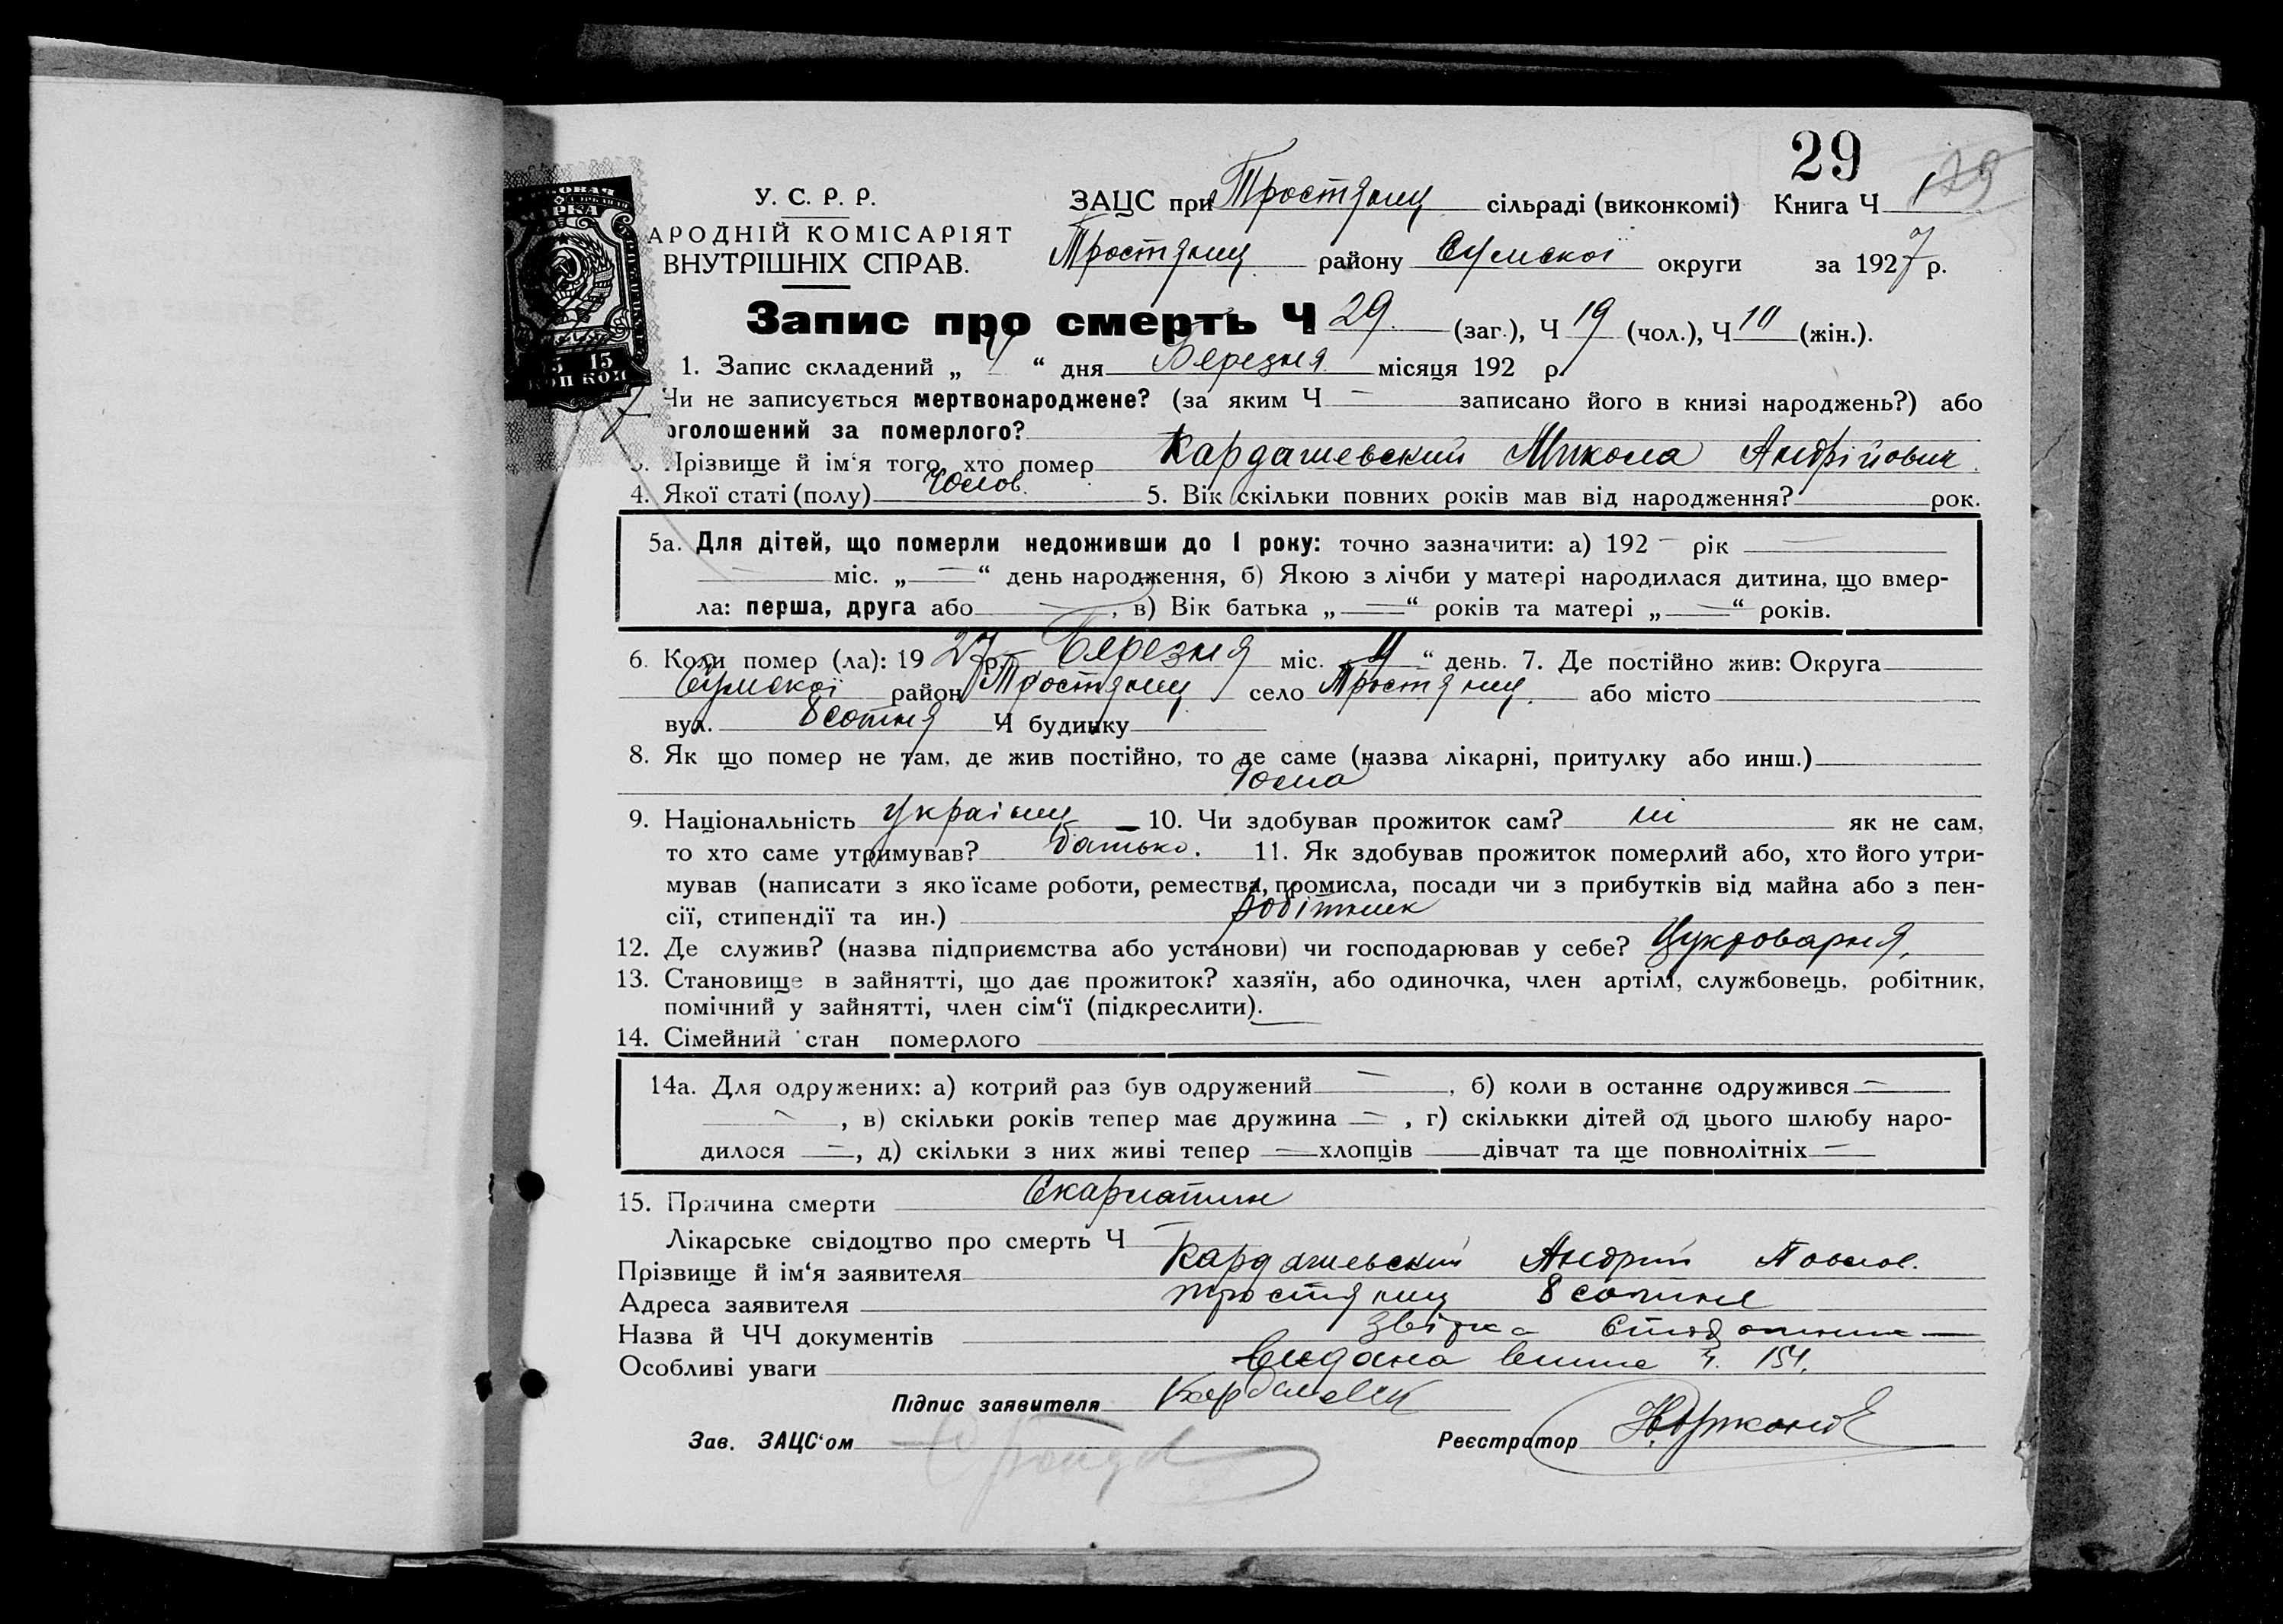 29
У. С. Р. Р.
ЗАЦС при Тростянец сільраді (виконкомі) Книга Ч 1
АРОДНІЙ КОМІСАРІЯТ
ВНУТРІШНІХ СПРАВ.
Тростянец району Сумскої округи за 1927 р.
15 15
КОП КОП
Запис про смерть Ч 29 (заг.), Ч 19 (чол.), Ч 10 (жін.).
1. Запис складений „ 4 “ дня Березня місяця 192 р.
Чи не записується мертвонароджене? (за яким Ч — записано його в книзі народжень?) або
оголошений за померлого?
3. Прізвище й ім‘я того, хто помер Кардашевский Микола Андрійович
4. Якої статі (полу) Чолов. 5. Вік скільки повних років мав від народження? рок.
5а. Для дітей, що померли недоживши до 1 року: точно зазначити: а) 192 — рік —
— міс. „ — “ день народження, б) Якою з лічби у матері народилася дитина, що вмер-
ла: перша, друга або —, в) Вік батька „ — “ років та матері „ — “ років.
6. Коли помер (ла): 1927 р. Березня міс. „ 4 “ день. 7. Де постійно жив: Округа
Сумскої район Тростянец село Тростянец або місто
вул. 8 сотня Ч будинку
8. Як що помер не там, де жив постійно, то де саме (назва лікарні, притулку або инш.)
Дома
9. Національність Українец 10. Чи здобував прожиток сам? ні як не сам,
то хто саме утримував? батько. 11. Як здобував прожиток померлий або, хто його утри-
мував (написати з яко їсаме роботи, ремества, промисла, посади чи з прибутків від майна або з пен-
сії, стипендії та ин.) робітник
12. Де служив? (назва підприємства або установи) чи господарював у себе? Цукроварня,
13. Становище в зайнятті, що дає прожиток? хазяїн, або одиночка, член артілі, службовець, робітник,
помічний у зайнятті, член сім‘ї (підкреслити).
14. Сімейний стан померлого
14а. Для одружених: а) котрий раз був одружений —, б) коли в останнє одружився —
—, в) скільки років тепер має дружина —, г) скількки дітей од цього шлюбу наро-
дилося —, д) скільки з них живі тепер — хлопців — дівчат та ще повнолітніх —
15. Причина смерти Скарлатин
Лікарське свідоцтво про смерть Ч —
Прізвище й ім‘я заявителя Кардашевский Андрий Павлов.
Адреса заявителя Тростянец 8 сотня
Назва й ЧЧ документів
Особливі уваги Видана Ч. 154.
Підпис заявителя Кардашевск
Зав. ЗАЦС‘ом Реєстратор